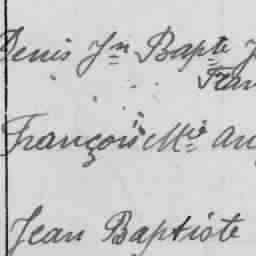 Denis Jn Bapte J
Fran
François Mie Au
Jean Baptiste